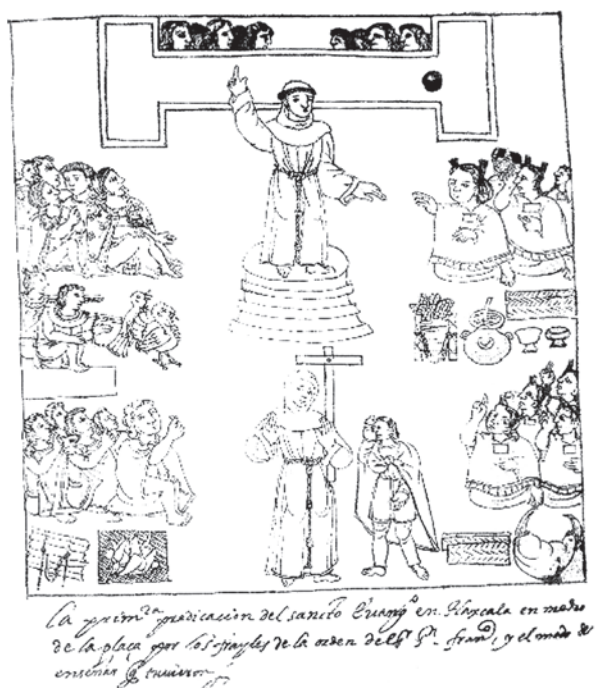 la prim^ra predicacion del sancto Euang^o en tlaxcala en medio
de la plaça por los frayles de la orden de, y el modo de
enseñar q tuuieron